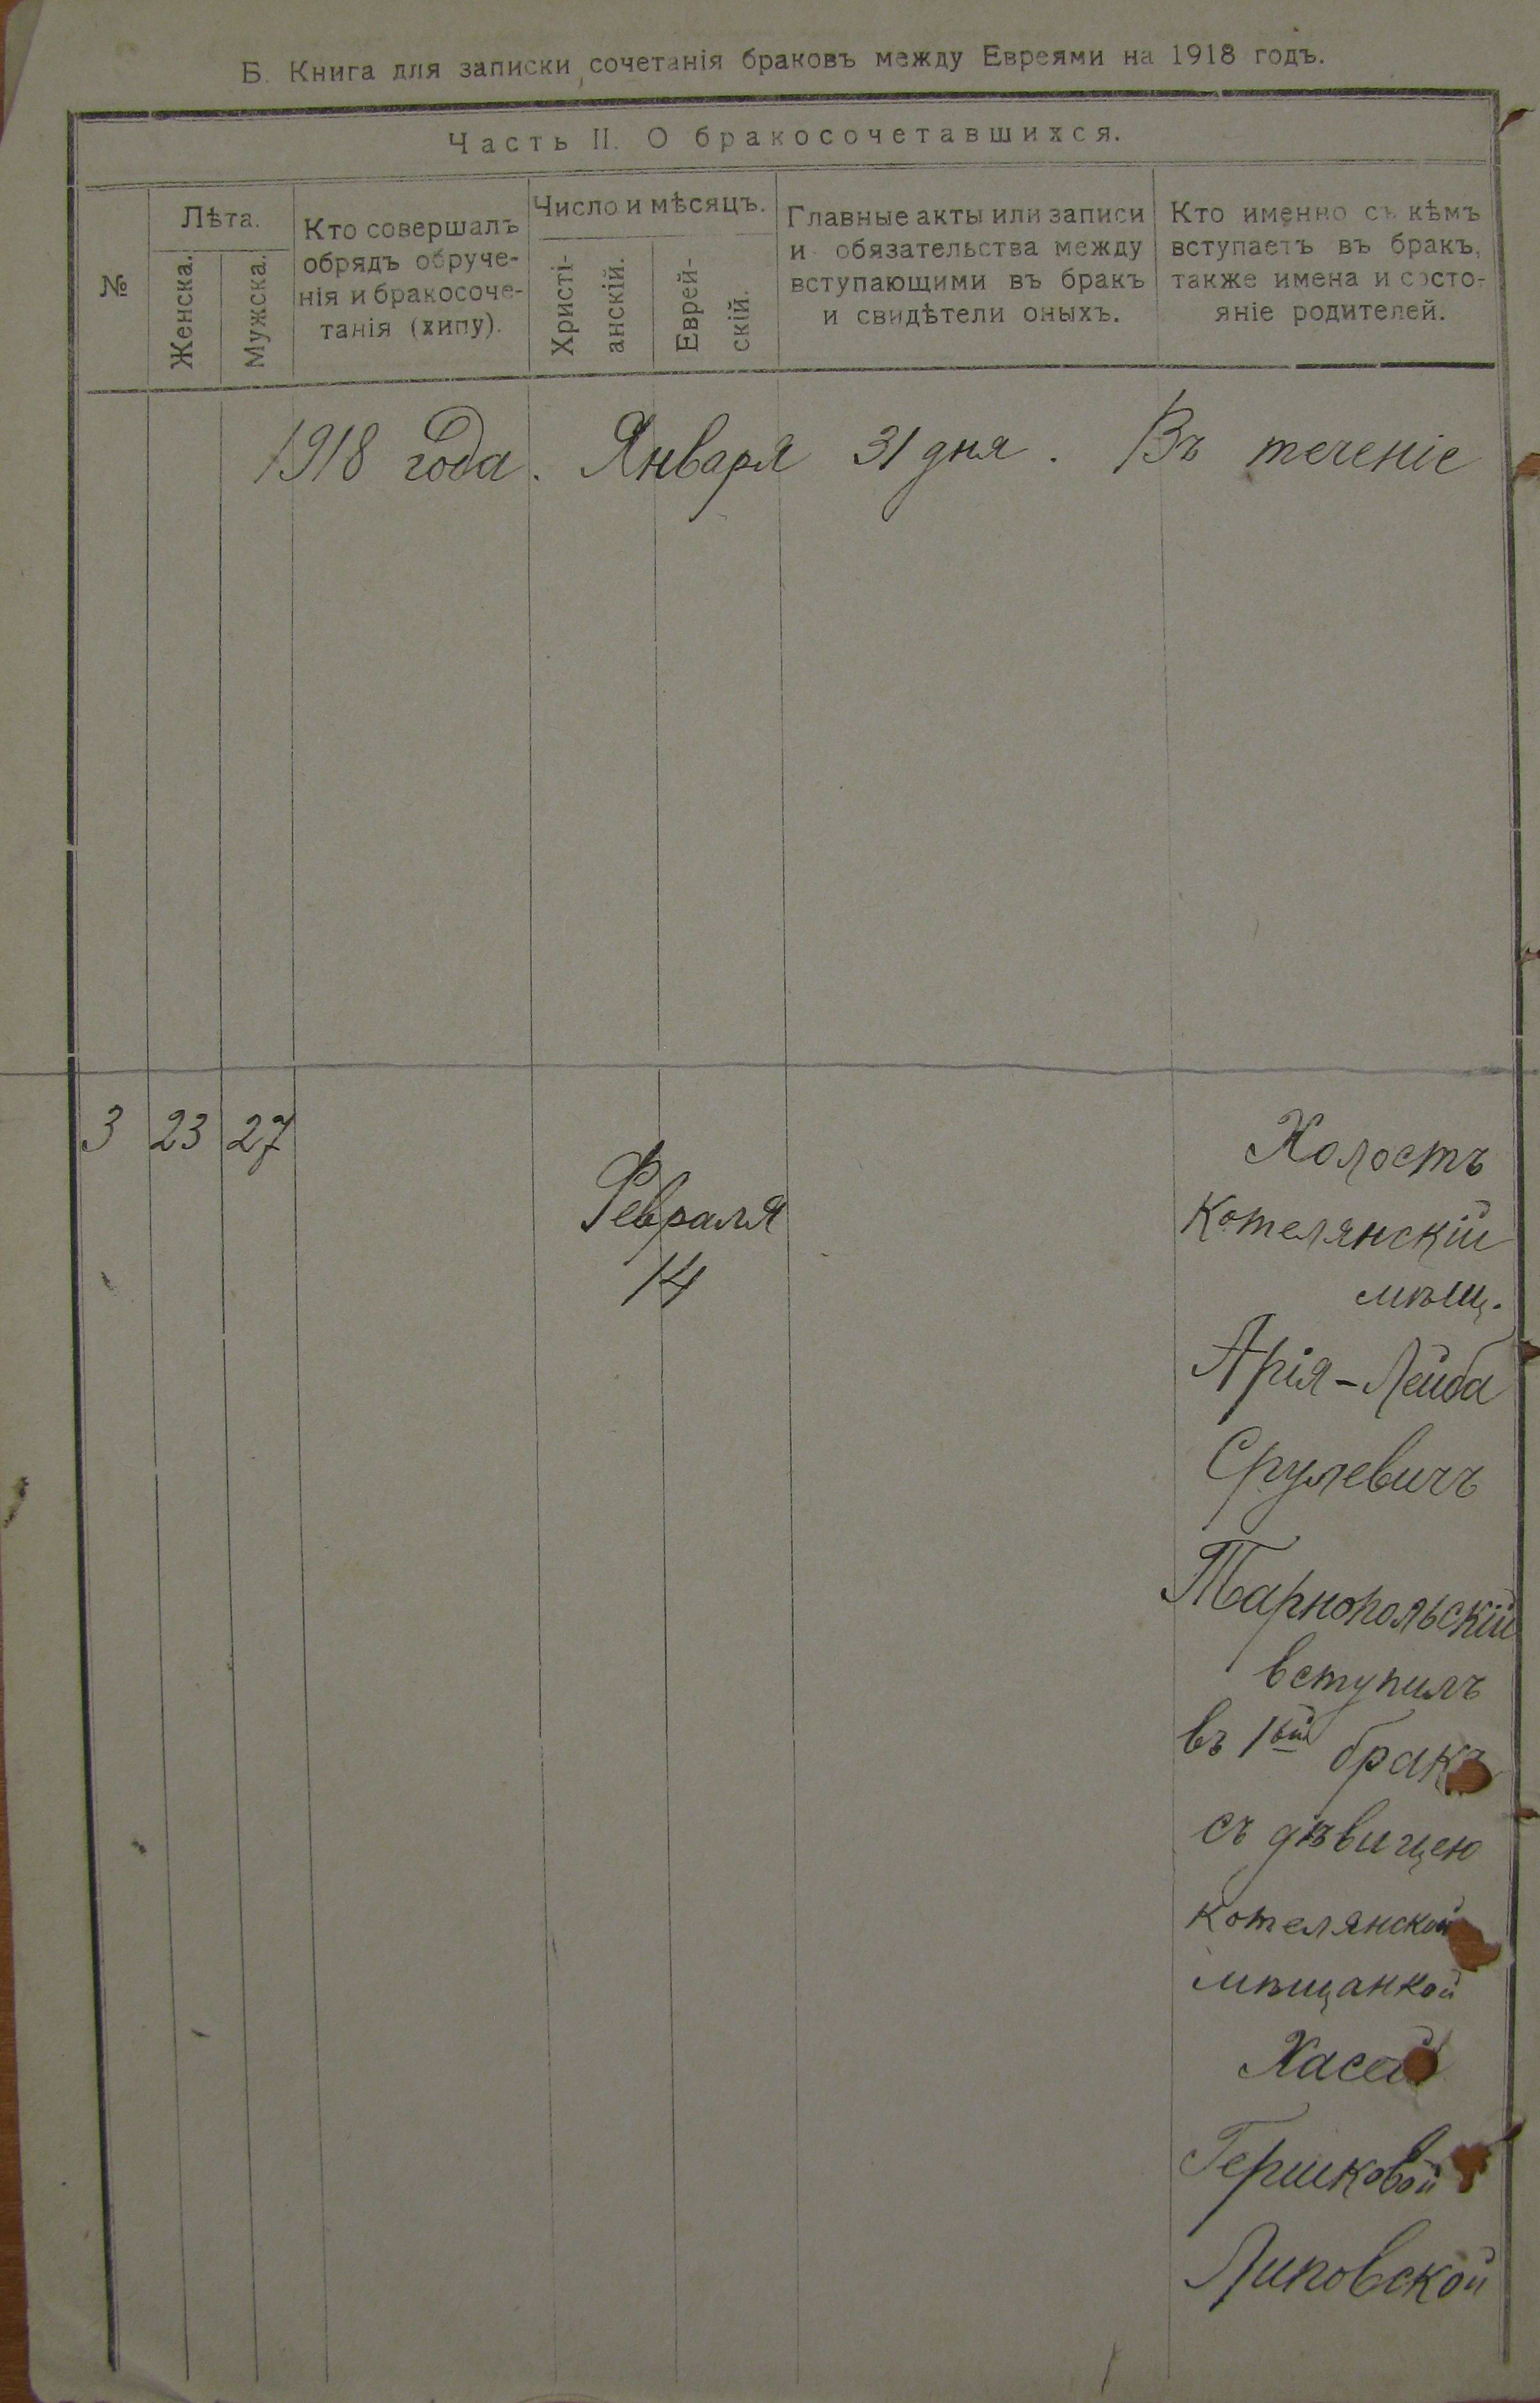 Б. Книга для записки сочетанія браковъ между Евреями на 1918 годъ.
Часть II. О бракосочетавшихся.
№
Лѣта.
Женска.
Мужска.
Кто совершалъ
обрядъ обруче-
нія и бракосоче-
танія (хипу).
Число и мѣсяцъ.
Христі-
анскій.
Еврей-
скій.
Главные акты или записи
и обязательства между
вступающими въ бракъ
и свидѣтели оныхъ.
Кто именно съ кѣмъ
вступаетъ въ бракъ,
также имена и состо-
яніе родителей.
1918 года. Января 31 дня. Въ теченіе
3 23 27
Февраля
14
Холостъ
Котелянскій
мѣщ.
Арія-Лейба
Срулевичъ
Тарнопольскій
вступилъ
въ 1ый бракъ
съ дѣвицею
котелянской
мѣщанкой
Хасей
Гершковой
Липовской